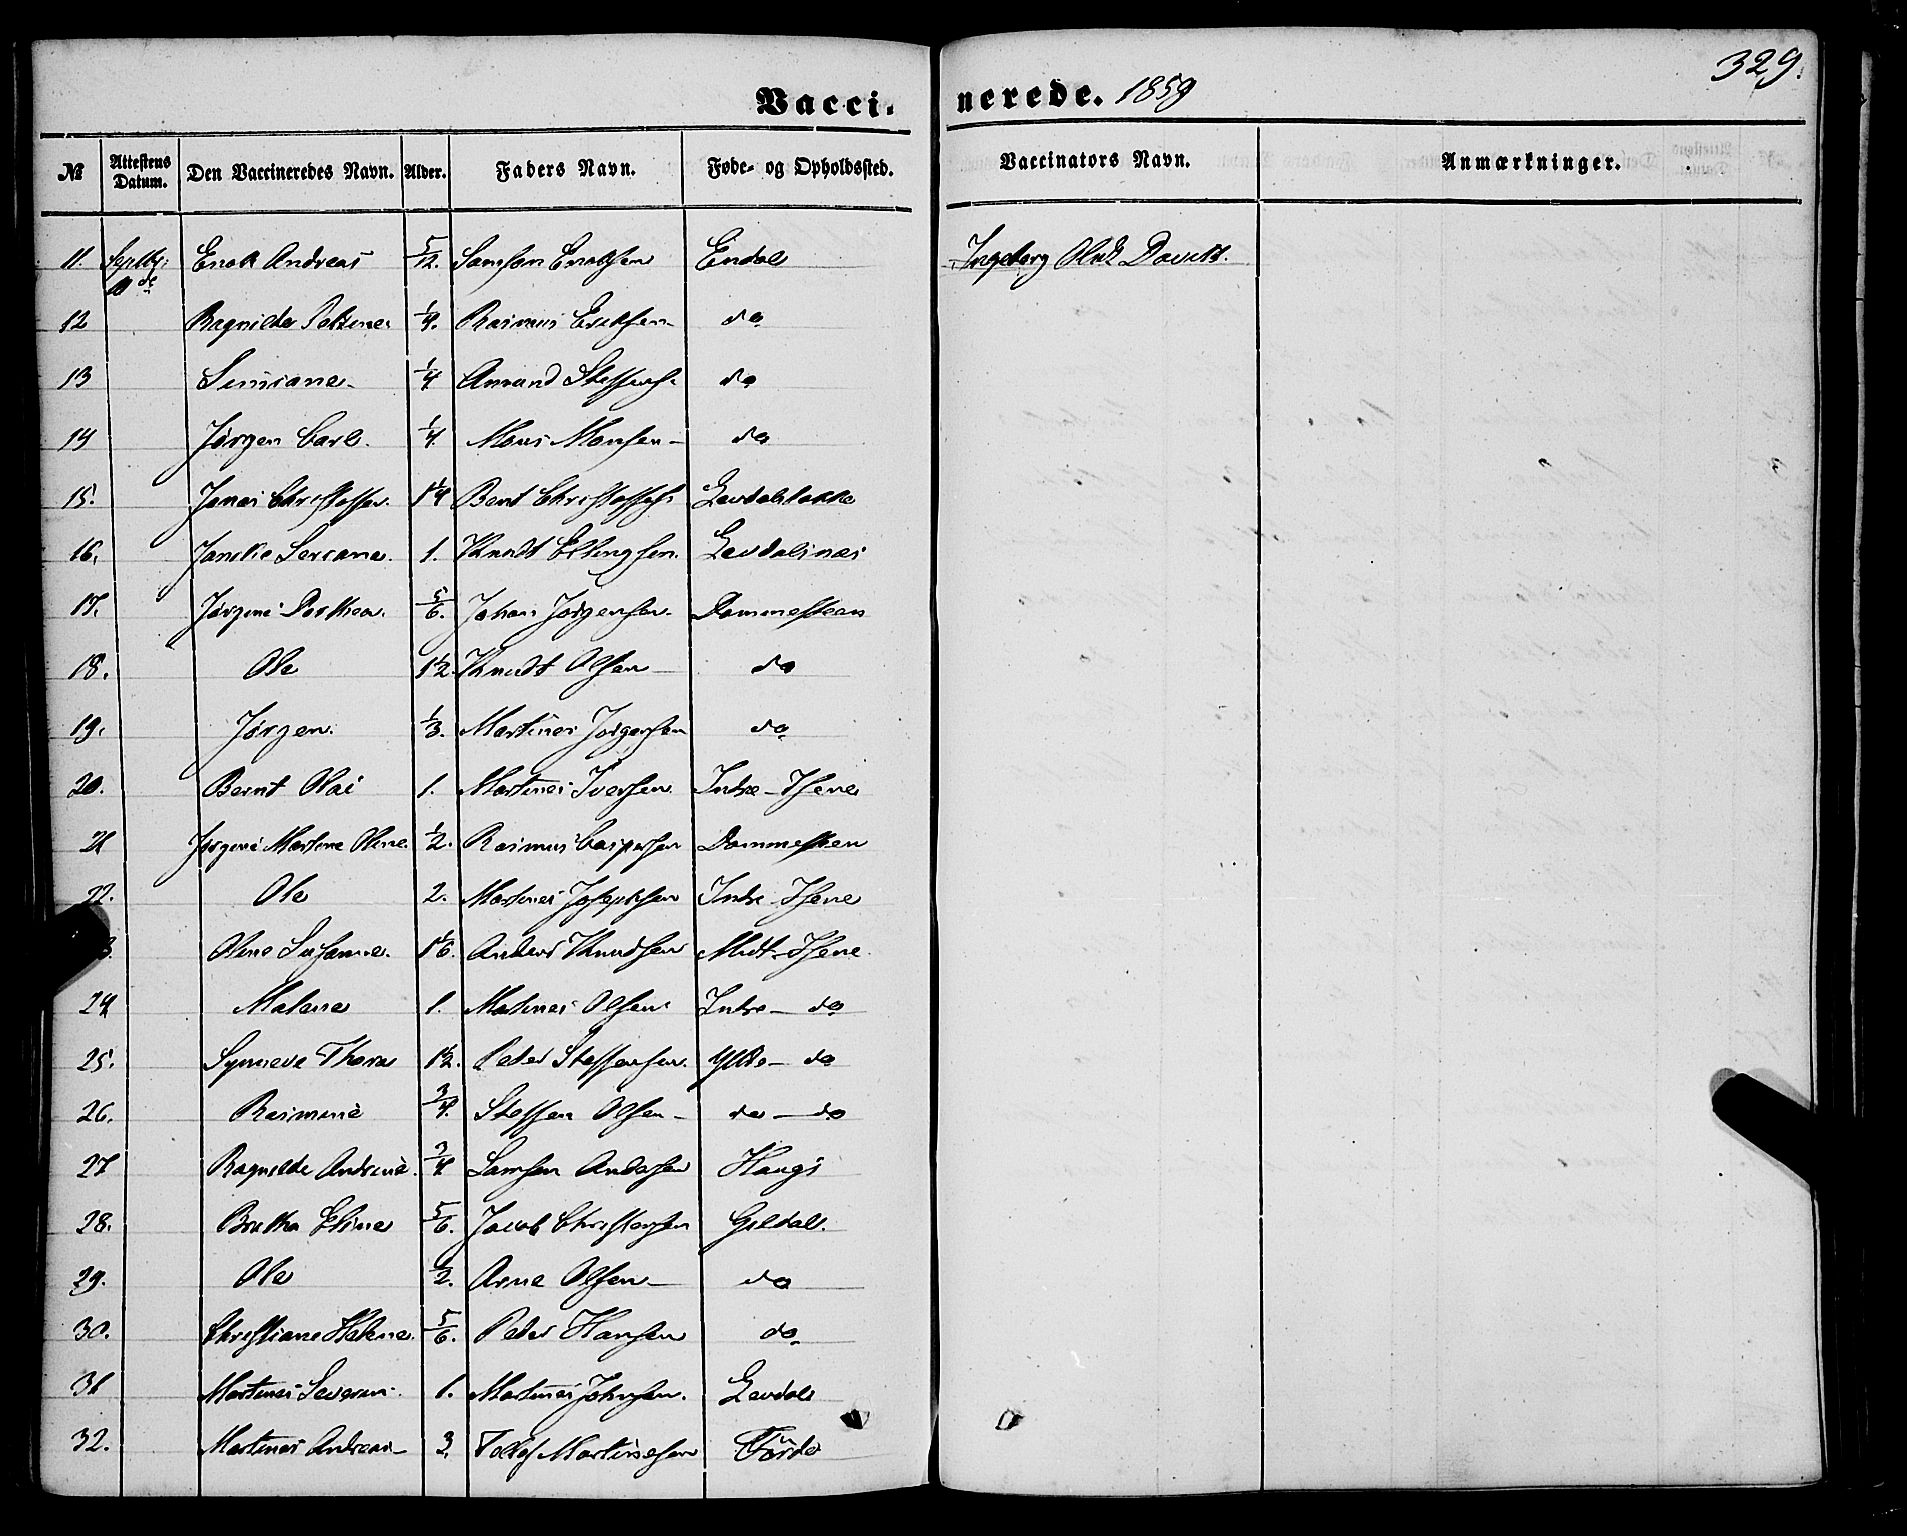 329.
Vacci- nerede. 1859
№ Attestens Datum. Den Vaccineredes Navn. Alder. Faders Navn. Føde- og Opholdssted. Vaccinators Navn. Anmærkninger.
11. Septbr: Enok Andreas 5/12. Samson Enoksen Endal Ingeborg Davids.
12 Ragnilda 1/4. Rasmus Eriksen do
13 Simiane 1/4 Amund Steffens. do
14 Jørgen Carl. 1/4. Mons Monsen do
15. Jonas Christoffer. 1 1/4 Bent Christoffers Levdalslokke
16. Jancke Seriana. 1. Knudt Ellingsen. Levdalsnæs
17. Jørgine Dorthea. 5/6. Johan Jørgensen. Dommesteen
18. Ole 1 1/2. Knudt Olsen do
19. Jørgen. 1/3. Martinus Jørgensen do
20. Bernt Olai 1. Martinus Iversen Indre-Hene
21 Jørgine Martine Oline 1/2. Rasmus Caspersen Dommesteen
22. Ole 2. Martinus Josephsen Indre-Hene
3. Oline Susanne. 1 1/6. Anders Knudsen Midt-Hene
24 Malene 1. Martinus Olsen Indre- do
25. Synneva Thora 1 1/2. Peder Steffensen. Ytre- do
26. Rasmine 3/4. Steffen Olsen do - do
27 Ragnilde Andrine. 3/4 Samson Andersen Haugs
28. Bretha Eline 5/6. Jacob Christensen Gildal.
29. Ole 1/2. Arne Olsen do
30. Christiane Helene. 5/6. Peder Hansen do
31 Martinus Severin. 1. Martinus Johnsen. Levdal
32. Martinus Andreas 3. Martinesen Førde